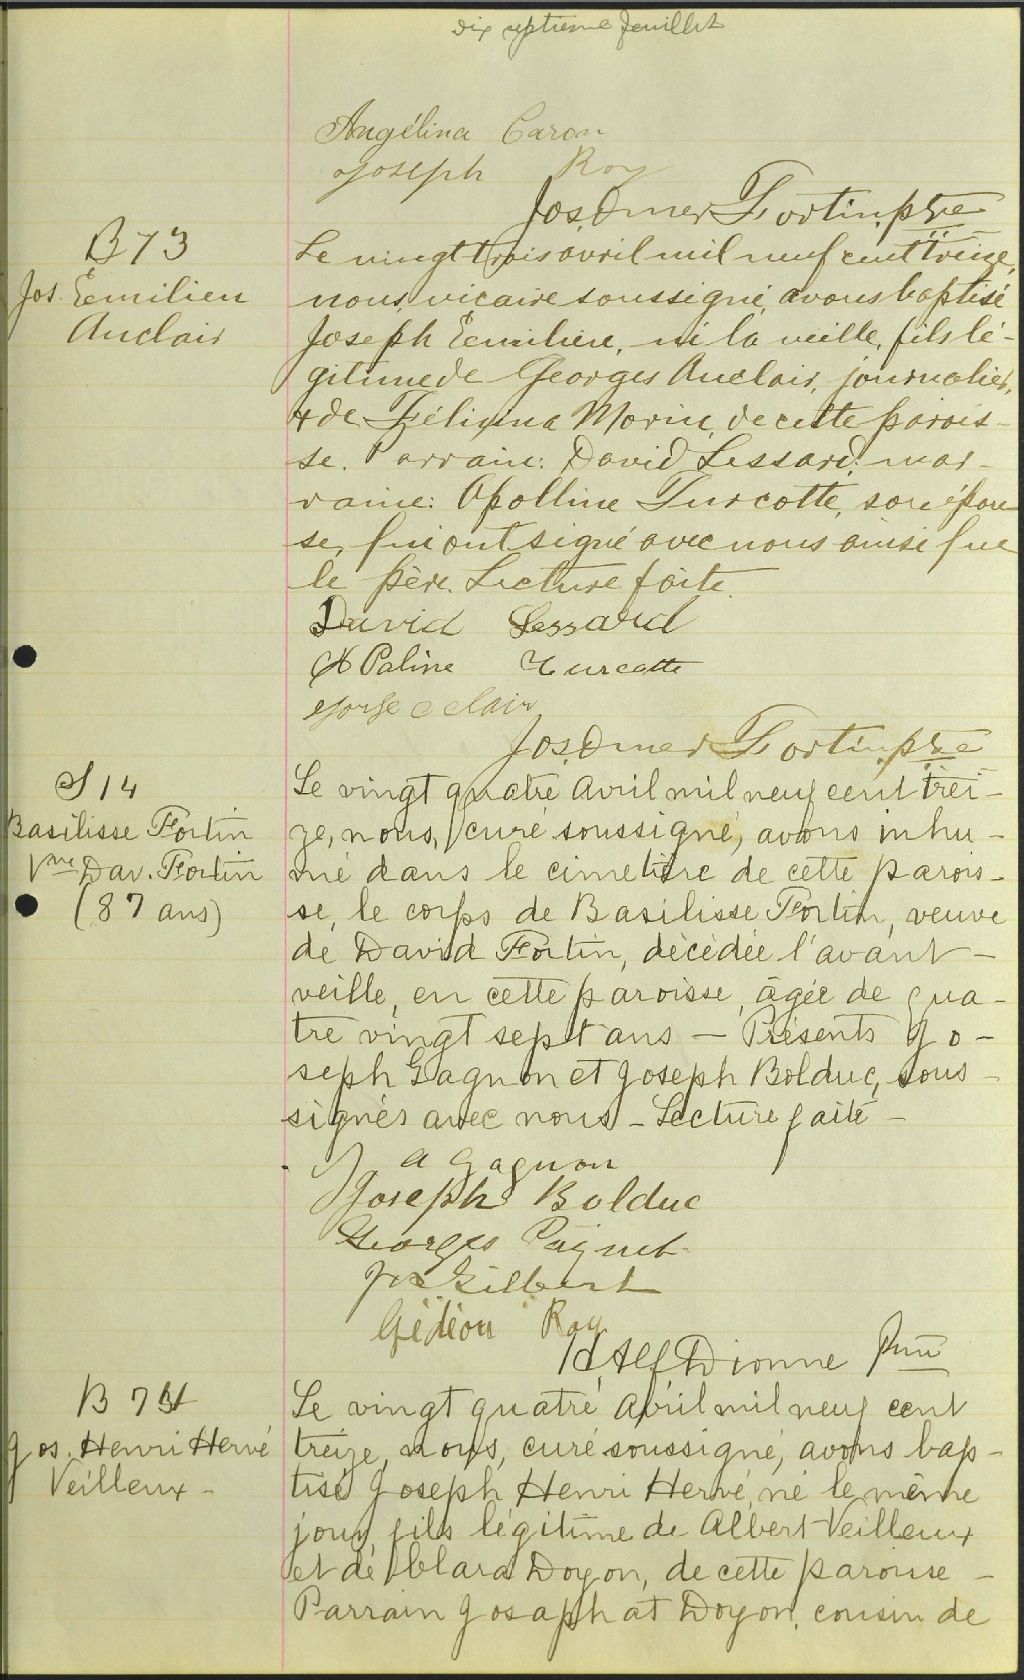 dix septième feuillet
Angélina Caron
Joseph Roy
Jos. Omer Fortin, ptre
B 73
Jos. Emilien
Auclair
Le vingt trois avril mil neuf cent treize,
nous, vicaire soussigné, avons baptisé
Joseph Emilien, né la veille, fils lé-
gitime de Georges Auclair, journalier,
& de Félixina Morin, de cette parois-
se. Parrain: David Lessard; mar-
raine: Apolline Turcotte, son épou
se, qui ont signé avec nous ainsi que
le père. Lecture faite.
David Lessard
Paline Turcotte
Jos. Omer Fortin, ptre
S 14
Basilisse Fortin
Vve Dav. Fortin
(87 ans)
Le vingt quatre Avril mil neuf cent trei-
ze, nous, curé soussigné, avons inhu-
mé dans le cimetière de cette parois-
se, le corps de Basilisse Fortin, veuve
de David Fortin, décédée l'avant-
veille, en cette paroisse, âgée de qua-
tre vingt sept ans – Présents Jo-
seph Gagnon et Joseph Bolduc, sous-
signés avec nous – Lecture faite –
J a Gagnon
Joseph Bolduc
Georges Paquet
Jos Gilbert
Gédéon Roy
Alf. Dionne Ptre
B 74
Jos. Henri Hervé
Veilleux –
Le vingt quatre Avril mil neuf cent
treize, nous, curé soussigné, avons bap-
tisé Joseph Henri Hervé, né le même
jour, fils légitime de Albert Veilleux
et de Clara Doyon, de cette paroisse –
Parrain Josaphat Doyon, cousin de